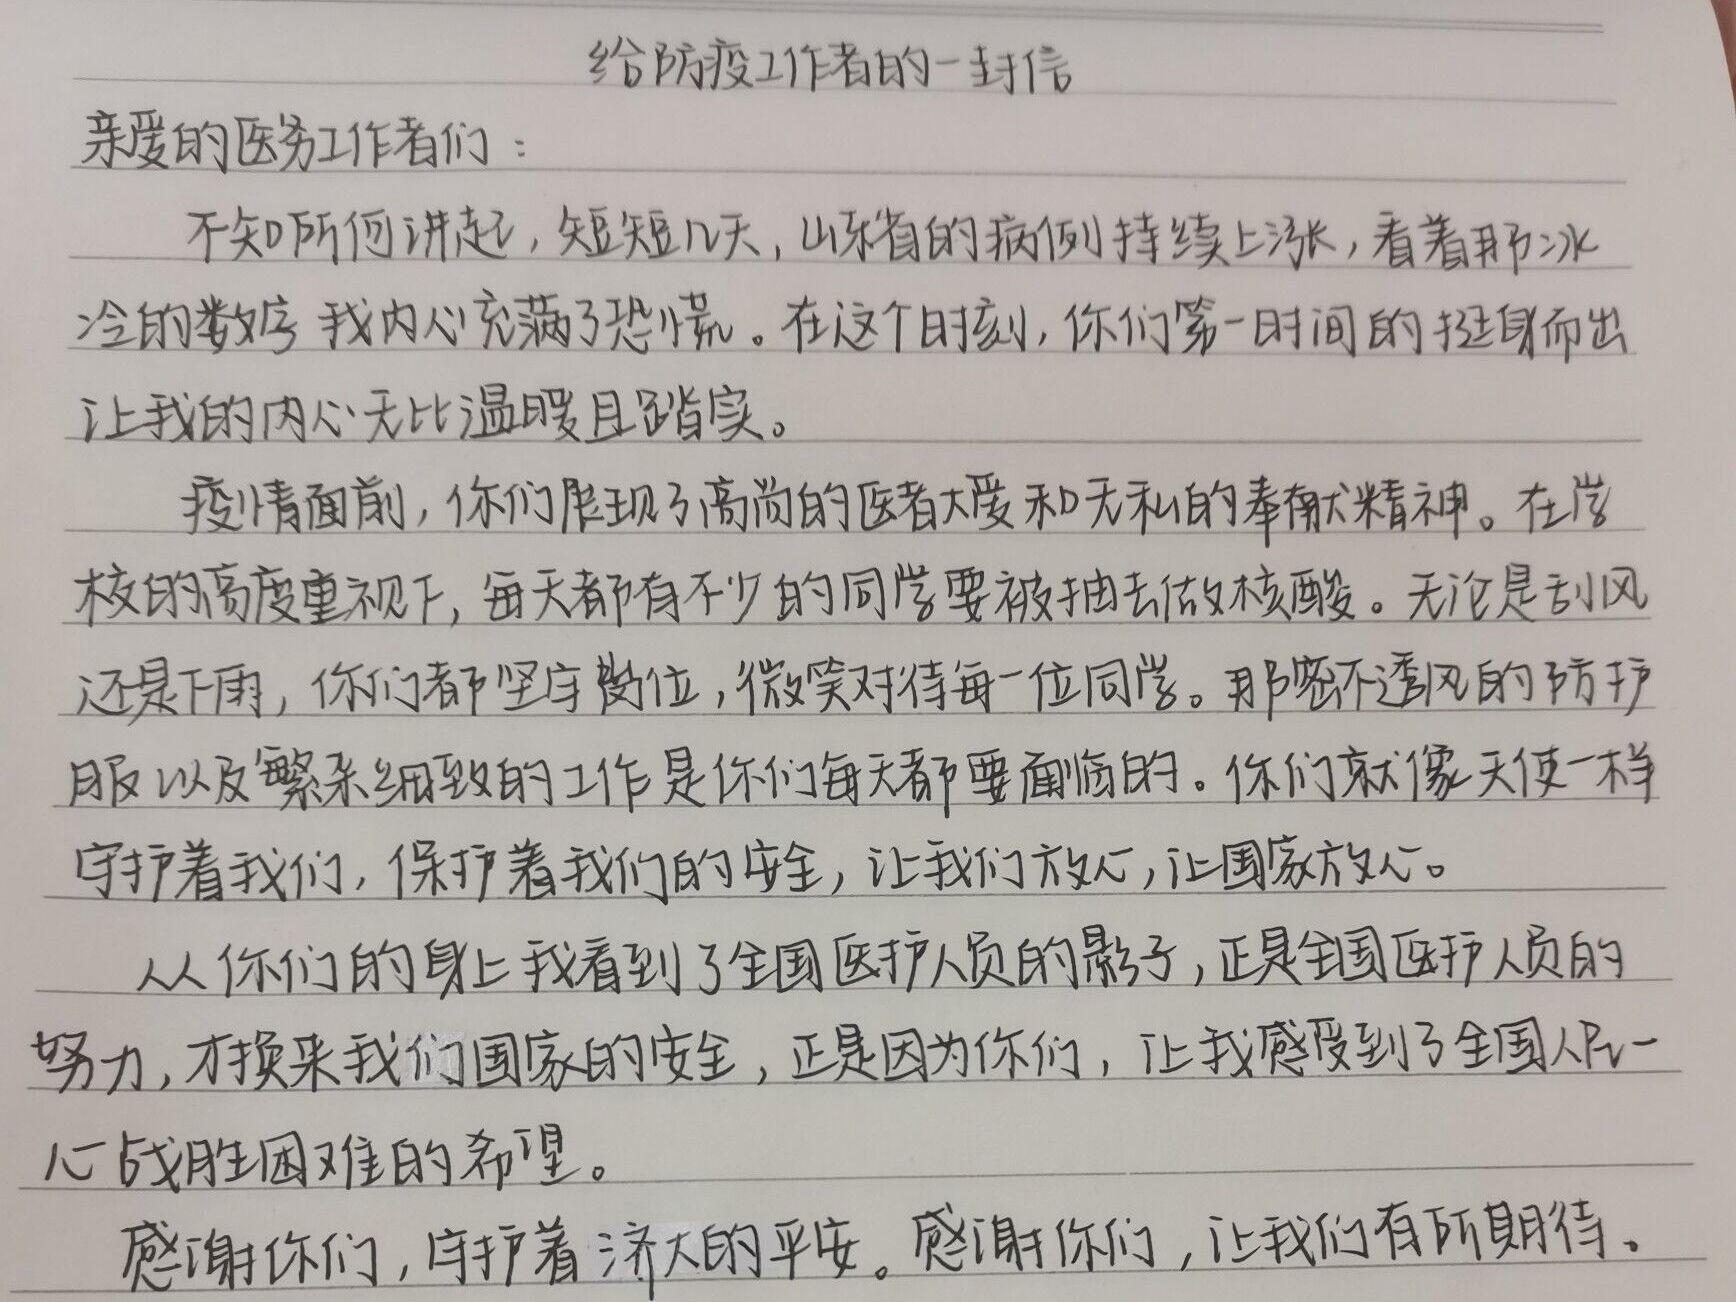 给防疫工作者的一封信
亲爱的医务工作者们：
不知所何讲起，短短几天，山东省的病例持续上涨，看着那冰
冷的数字 我内心充满了恐慌。在这个时刻，你们第一时间的挺身而出
让我的内心无比温暖且踏实。
疫情面前，你们展现了高尚的医者大爱和无私的奉献精神。在学
校的高度重视下，每天都有不少的同学要被抽去做核酸。无论是刮风
还是下雨，你们都坚守岗位，微笑对待每一位同学。那密不透风的防护
服以及繁杂细致的工作是你们每天都要面临的。你们就像天使一样
守护着我们，保护着我们的安全，让我们放心，让国家放心。
从你们的身上我看到了全国医护人员的影子，正是全国医护人员的
努力，才换来我们国家的安全，正是因为你们，让我感受到了全国人民一
心战胜困难的希望。
感谢你们，守护着济大的平安。感谢你们，让我们有所期待。